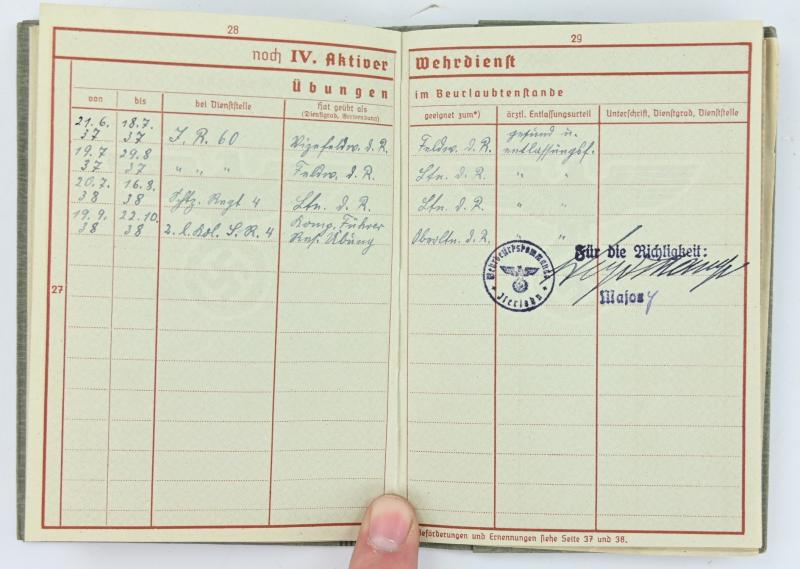 28
noch IV. Aktiver
Übungen
von
bis
bei Dienststelle
Hat geübt als
(Dienstgrad, Verwendung)
21. 6. 37
18. 7. 37
J. R. 60
Vizefeldw. d. R.
19. 7 37
29. 8 37
" " "
Feldw. d. R.
20. 7. 38
16. 8. 38
Schtz. Regt 4
Ltn. d. R.
19. 9. 38
22. 10. 38
2. l. Kol. S. R. 4
Komp. Führer
Res. Übung
27
29
Wehrdienst
im Beurlaubtenstande
geeignet zum*)
ärztl. Entlassungsurteil
Unterschrift, Dienstgrad, Dienststelle
Feldw. d. R.
gesund u.
entlassungsf.
Ltn. d. R.
" "
Ltn. d. R.
" "
Oberltn. d. R.
" "
Für die Richtigkeit:
Wehrbezirkskommando
Iserlohn
Major
Beförderungen und Ernennungen siehe Seite 37 und 38.